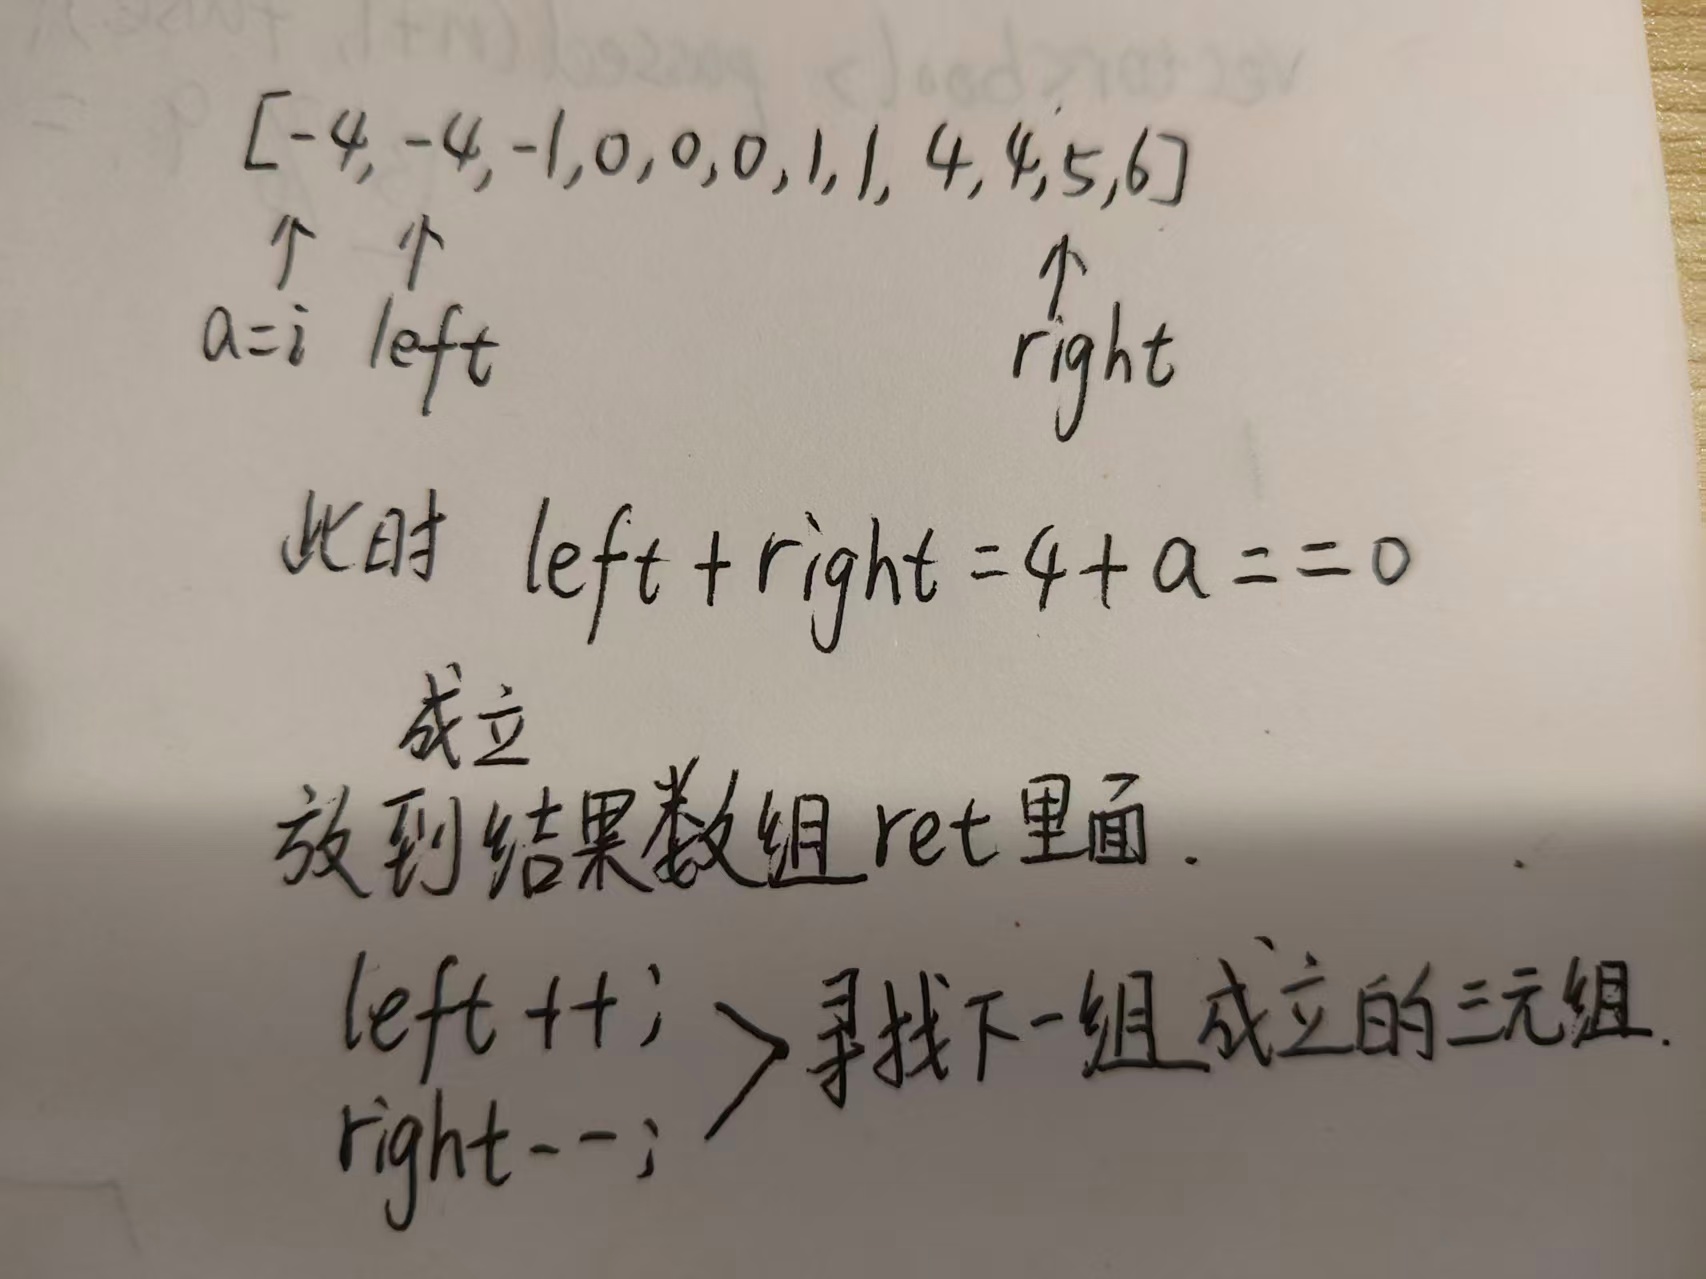 [-4, -4, -1, 0, 0, 0, 1, 1, 4, 4, 5, 6]
a=i left right
此时 left + right = 4 + a = = 0
成立
放到结果数组 ret 里面.
left ++;
寻找下一组成立的三元组.
right--;